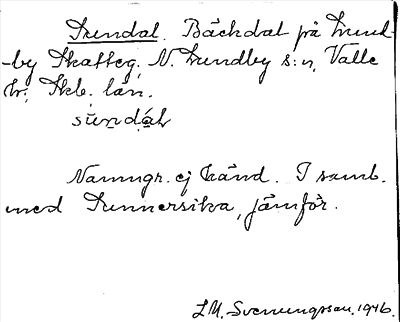 Sundal. Bäckdal på Lund-
-by Skatteg. N. Lundby s:n, Valle
hr; Skb. län.
sŭndáɫ
Namngr. ej känd. I samb.
med Sunnersika, jämför.
L.M. Svenungsson. 1946.